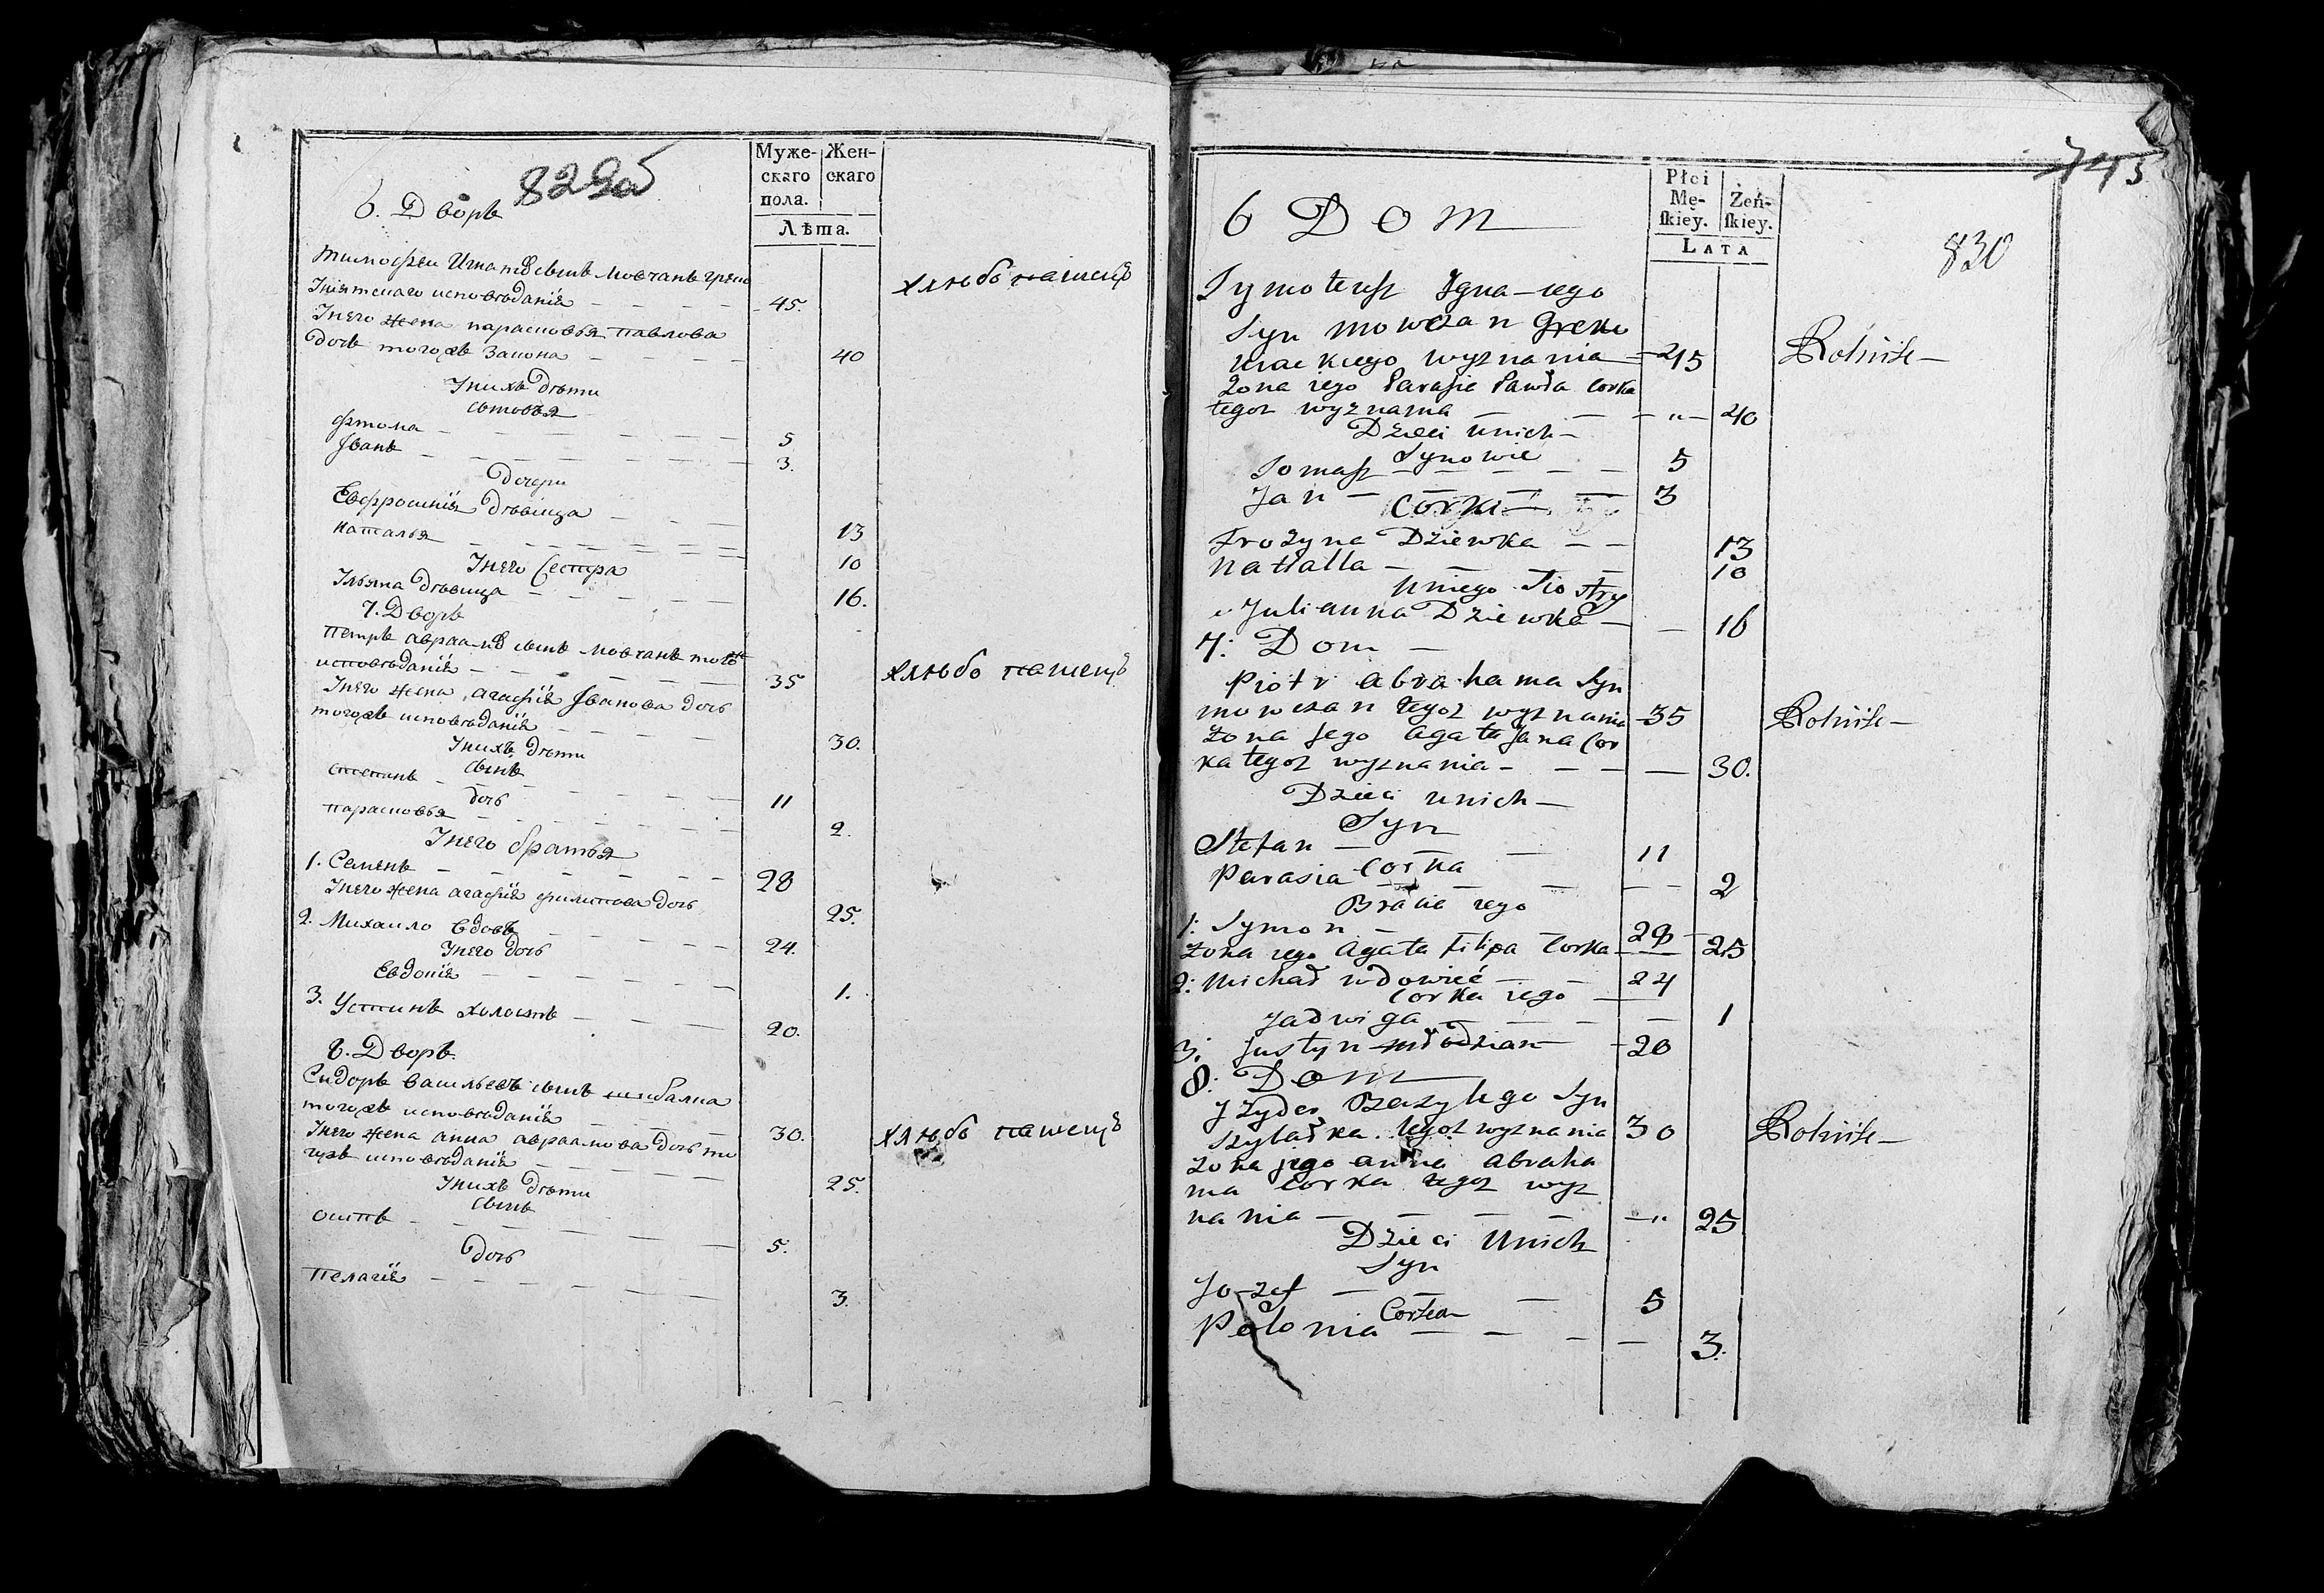 829об
Муже-
скаго
пола.
Жен-
скаго
Лѣта.
6. Дворъ
Тимофеи Игнатовъ сынъ Мовчанъ греко
Уніятскаго исповѣданія 45.
Унего жена парасковья павлова
дочь тогожъ закона 40
Унихъ дѣти
сыновья
фтома 5
Іванъ 3.
Дочери
Евфросинія дѣвица 13
наталья 10
Унего Сестра
Ульяна дѣвица 16.
7. Дворъ
петръ авраамовъ сынъ Мовчанъ тогожъ
исповѣданія 35
Унего жена агафія Іванова дочь
тогожъ исповѣданія 30.
Унихъ дѣти
сынъ
степанъ 11
дочь
парасковья 2.
Унего братья
1. Семенъ 28
Унего жена агафія филипова дочь 25.
2. Михаило вдовъ 24.
Унего дочь
Евдокія 1.
3. Устинъ холостъ 20.
8. Дворъ.
Сидоръ васильевъ сынъ шибалка
тогожъ исповѣданія 30.
Унего жена анна авраамова дочь то
гожъ исповѣданія 25.
Унихъ дѣти
сынъ
осипъ 5.
дочь
пелагія 3.
хлѣбопашецъ
хлѣбопашецъ
хлѣбопашецъ
743
830
Płci
Mę-
ſkiey.
Żeń-
ſkiey.
LATA
6 Dom
Tymoteusz Igna-cego
Syn mowczan Greko
Uniackiego wyznania 45
Zona iego Parasie Pawła Corka
tegoz wyznania 40
Dzieci unich
Synowie
Tomasz 5
Jan 3
Corki
Frozyna Dziewka 13
Natialla 10
Uniego Siostry
Julianna Dziewka 16
7: Dom
Piotr Abrahama Syn
mowczan tegoz wyznania 35
Zona Jego Agata Jana Cor
ka tegoz wyznania 30.
Dzieci unich
Syn
Stefan 11
Corka
Parasia 2
Bracie iego
1: Symon 28
Zona iego Agata Filipa Corka 25
2: Michał wdowieć 24
Corka iego
Jadwiga 1
3: Justyn młodzian 20
8: Dom
Izyder Bazylego Syn
Szybałka tegoz wyznania 30
Zona jego anna abraha
ma Corka tegoz wyz
nania 25
Dzieci Unich
Syn
Jozef 5
Corka
Polonia 3.
Rolnik
Rolnik
Rolnik